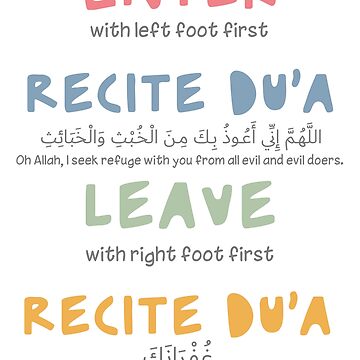 ENTER
with left foot first
RECITE DU'A
اللَّهُمَّ إِنِّي أَعُوذُ بِكَ مِنَ الْخُبْثِ وَالْخَبَائِثِ
Oh Allah, I seek refuge with you from all evil and evil doers.
LEAVE
with right foot first
RECITE DU'A
غُفْرَانَكَ